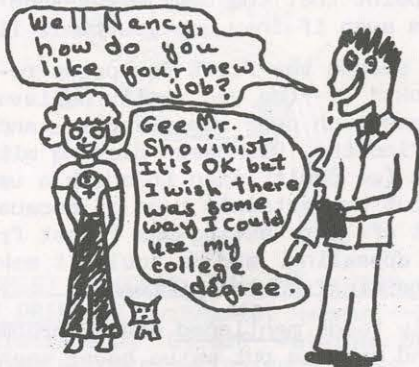 Well Nancy,
how do you
like your new
job?
Gee Mr.
Shovinist
It's OK but
I wish there
was some
way I could
use my
college
degree